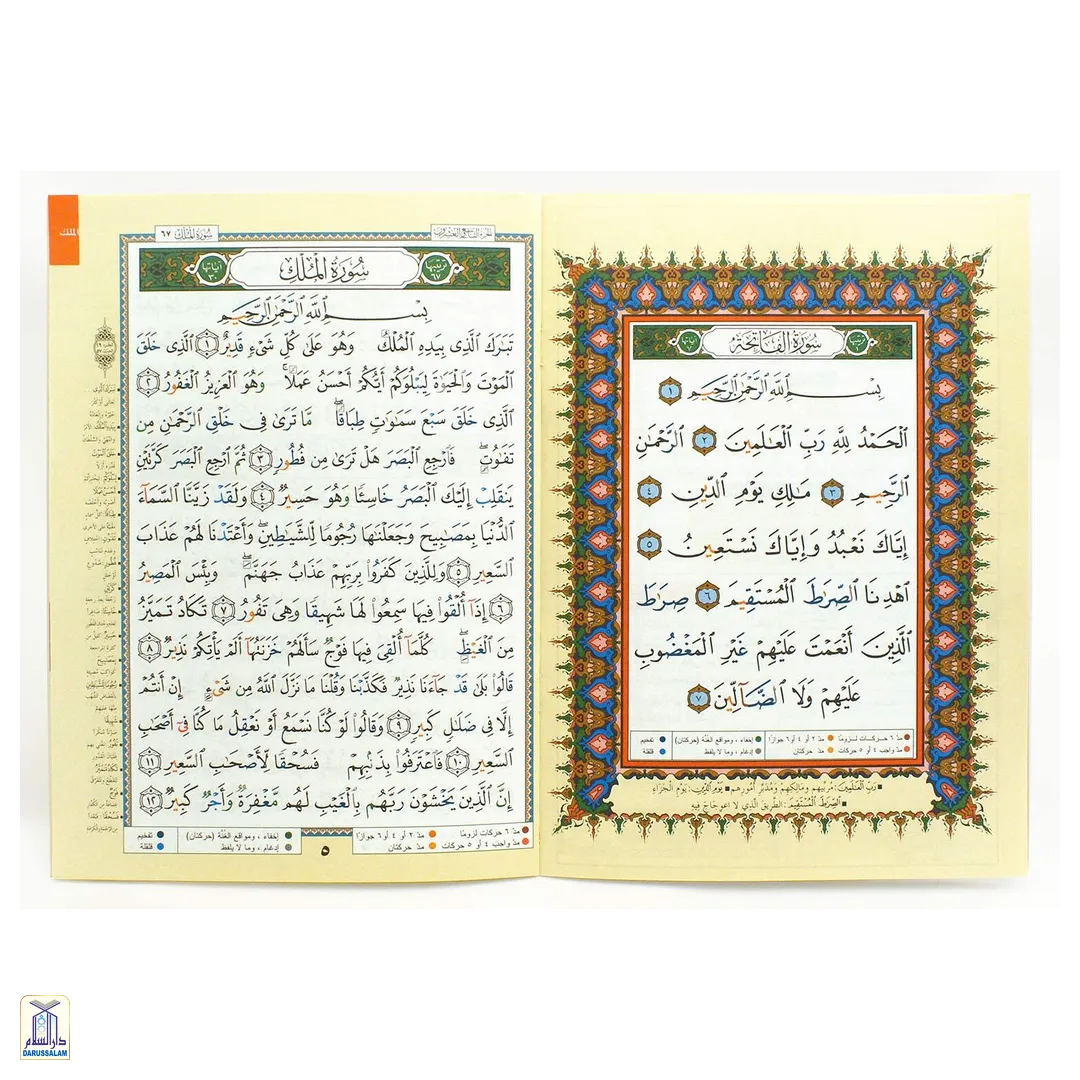 سُورَةُ الْفَاتِحَةِ
ترتيبها ١
آياتها ٧
بِسْمِ ٱللَّهِ ٱلرَّحْمَٰنِ ٱلرَّحِيمِ ١
ٱلْحَمْدُ لِلَّهِ رَبِّ ٱلْعَٰلَمِينَ ٢ ٱلرَّحْمَٰنِ
ٱلرَّحِيمِ ٣ مَٰلِكِ يَوْمِ ٱلدِّينِ ٤
إِيَّاكَ نَعْبُدُ وَإِيَّاكَ نَسْتَعِينُ ٥
ٱهْدِنَا ٱلصِّرَٰطَ ٱلْمُسْتَقِيمَ ٦ صِرَٰطَ
ٱلَّذِينَ أَنْعَمْتَ عَلَيْهِمْ غَيْرِ ٱلْمَغْضُوبِ
عَلَيْهِمْ وَلَا ٱلضَّآلِّينَ ٧
مدّ ٦ حركات لزوماً مدّ ٢ أو ٤ أو ٦ جوازاً إخفاء ، ومواقع الغُنَّة (حركتان) تفخيم
مدّ واجب ٤ أو ٥ حركات مدّ حركتان إدغام ، وما لا يلفظ قلقلة
رَبِّ الْعَالَمِينَ: مُرَبِّيهِم ومَالِكِهِم ومُدَبِّرِ أُمُورِهِم يَوْمِ الدِّينِ: يَوْمِ الجَزَاءِ
الصِّرَاطَ الْمُسْتَقِيمَ: الطَّرِيقَ الَّذِي لا اعْوِجَاجَ فِيهِ
الملك
سُورَةُ الْمُلْكِ ٦٧
سُورَةُ الْمُلْكِ
ترتيبها ٦٧
آياتها ٣٠
بِسْمِ ٱللَّهِ ٱلرَّحْمَٰنِ ٱلرَّحِيمِ
تَبَٰرَكَ ٱلَّذِى بِيَدِهِ ٱلْمُلْكُ وَهُوَ عَلَىٰ كُلِّ شَىْءٍ قَدِيرٌ ١ ٱلَّذِى خَلَقَ
ٱلْمَوْتَ وَٱلْحَيَوٰةَ لِيَبْلُوَكُمْ أَيُّكُمْ أَحْسَنُ عَمَلًا ۚ وَهُوَ ٱلْعَزِيزُ ٱلْغَفُورُ ٢
ٱلَّذِى خَلَقَ سَبْعَ سَمَٰوَٰتٍ طِبَاقًا ۖ مَّا تَرَىٰ فِى خَلْقِ ٱلرَّحْمَٰنِ مِن
تَفَٰوُتٍ ۖ فَٱرْجِعِ ٱلْبَصَرَ هَلْ تَرَىٰ مِن فُطُورٍ ٣ ثُمَّ ٱرْجِعِ ٱلْبَصَرَ كَرَّتَيْنِ
يَنقَلِبْ إِلَيْكَ ٱلْبَصَرُ خَاسِئًا وَهُوَ حَسِيرٌ ٤ وَلَقَدْ زَيَّنَّا ٱلسَّمَآءَ
ٱلدُّنْيَا بِمَصَٰبِيحَ وَجَعَلْنَٰهَا رُجُومًا لِّلشَّيَٰطِينِ ۖ وَأَعْتَدْنَا لَهُمْ عَذَابَ
ٱلسَّعِيرِ ٥ وَلِلَّذِينَ كَفَرُوا۟ بِرَبِّهِمْ عَذَابُ جَهَنَّمَ ۖ وَبِئْسَ ٱلْمَصِيرُ
٦ إِذَآ أُلْقُوا۟ فِيهَا سَمِعُوا۟ لَهَا شَهِيقًا وَهِىَ تَفُورُ ٧ تَكَادُ تَمَيَّزُ
مِنَ ٱلْغَيْظِ ۖ كُلَّمَآ أُلْقِىَ فِيهَا فَوْجٌ سَأَلَهُمْ خَزَنَتُهَآ أَلَمْ يَأْتِكُمْ نَذِيرٌ ٨
قَالُوا۟ بَلَىٰ قَدْ جَآءَنَا نَذِيرٌ فَكَذَّبْنَا وَقُلْنَا مَا نَزَّلَ ٱللَّهُ مِن شَىْءٍ إِنْ أَنتُمْ
إِلَّا فِى ضَلَٰلٍ كَبِيرٍ ٩ وَقَالُوا۟ لَوْ كُنَّا نَسْمَعُ أَوْ نَعْقِلُ مَا كُنَّا فِىٓ أَصْحَٰبِ
ٱلسَّعِيرِ ١٠ فَٱعْتَرَفُوا۟ بِذَنۢبِهِمْ فَسُحْقًا لِّأَصْحَٰبِ ٱلسَّعِيرِ ١١
إِنَّ ٱلَّذِينَ يَخْشَوْنَ رَبَّهُم بِٱلْغَيْبِ لَهُم مَّغْفِرَةٌ وَأَجْرٌ كَبِيرٌ ١٢
مدّ ٦ حركات لزوماً مدّ ٢ أو ٤ أو ٦ جوازاً إخفاء ، ومواقع الغُنَّة (حركتان) تفخيم
مدّ واجب ٤ أو ٥ حركات مدّ حركتان إدغام ، وما لا يلفظ قلقلة
٥
دار السلام
DARUSSALAM